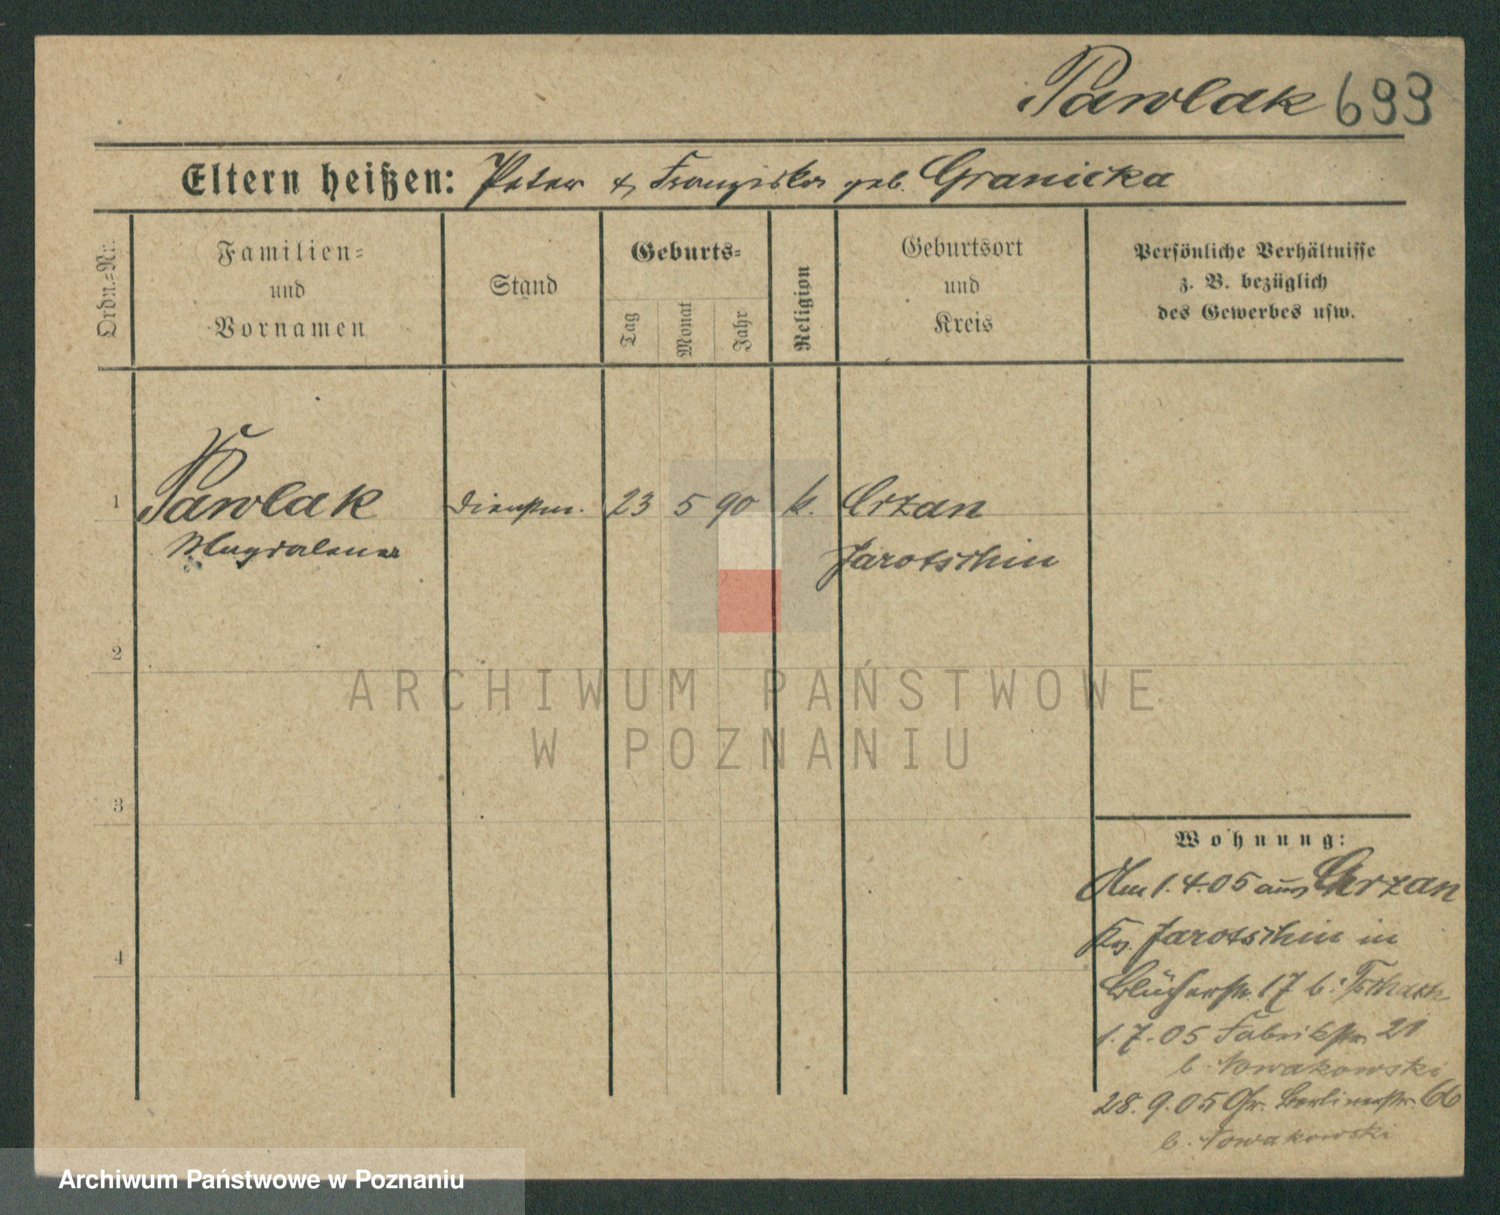 Pawlak 699
Eltern heißen: Peter & Franziska geb. Granicka
Ordn.-Nr.
Familien-
und
Vornamen
Stand
Geburts-
Tag
Monat
Jahr
Religion
Geburtsort
und
Kreis
Persönliche Verhältnisse
z. B. bezüglich
des Gewerbes usw.
1 Pawlak Dienstm. 23 5 90 k.
Magdalena Jarotschin
2
ARCHIWUM PAŃSTWOWE
W POZNANIU
3
4
Wohnung:
Am 1.4.05 aus
Krs. Jarotschin in
Blücherstr. 17 b.
1.7.05 Fabrikstr. 21
b. Nowakowski
28.9.05 Gr. Berlinerstr. 66
b. Nowakowski
Archiwum Państwowe w Poznaniu